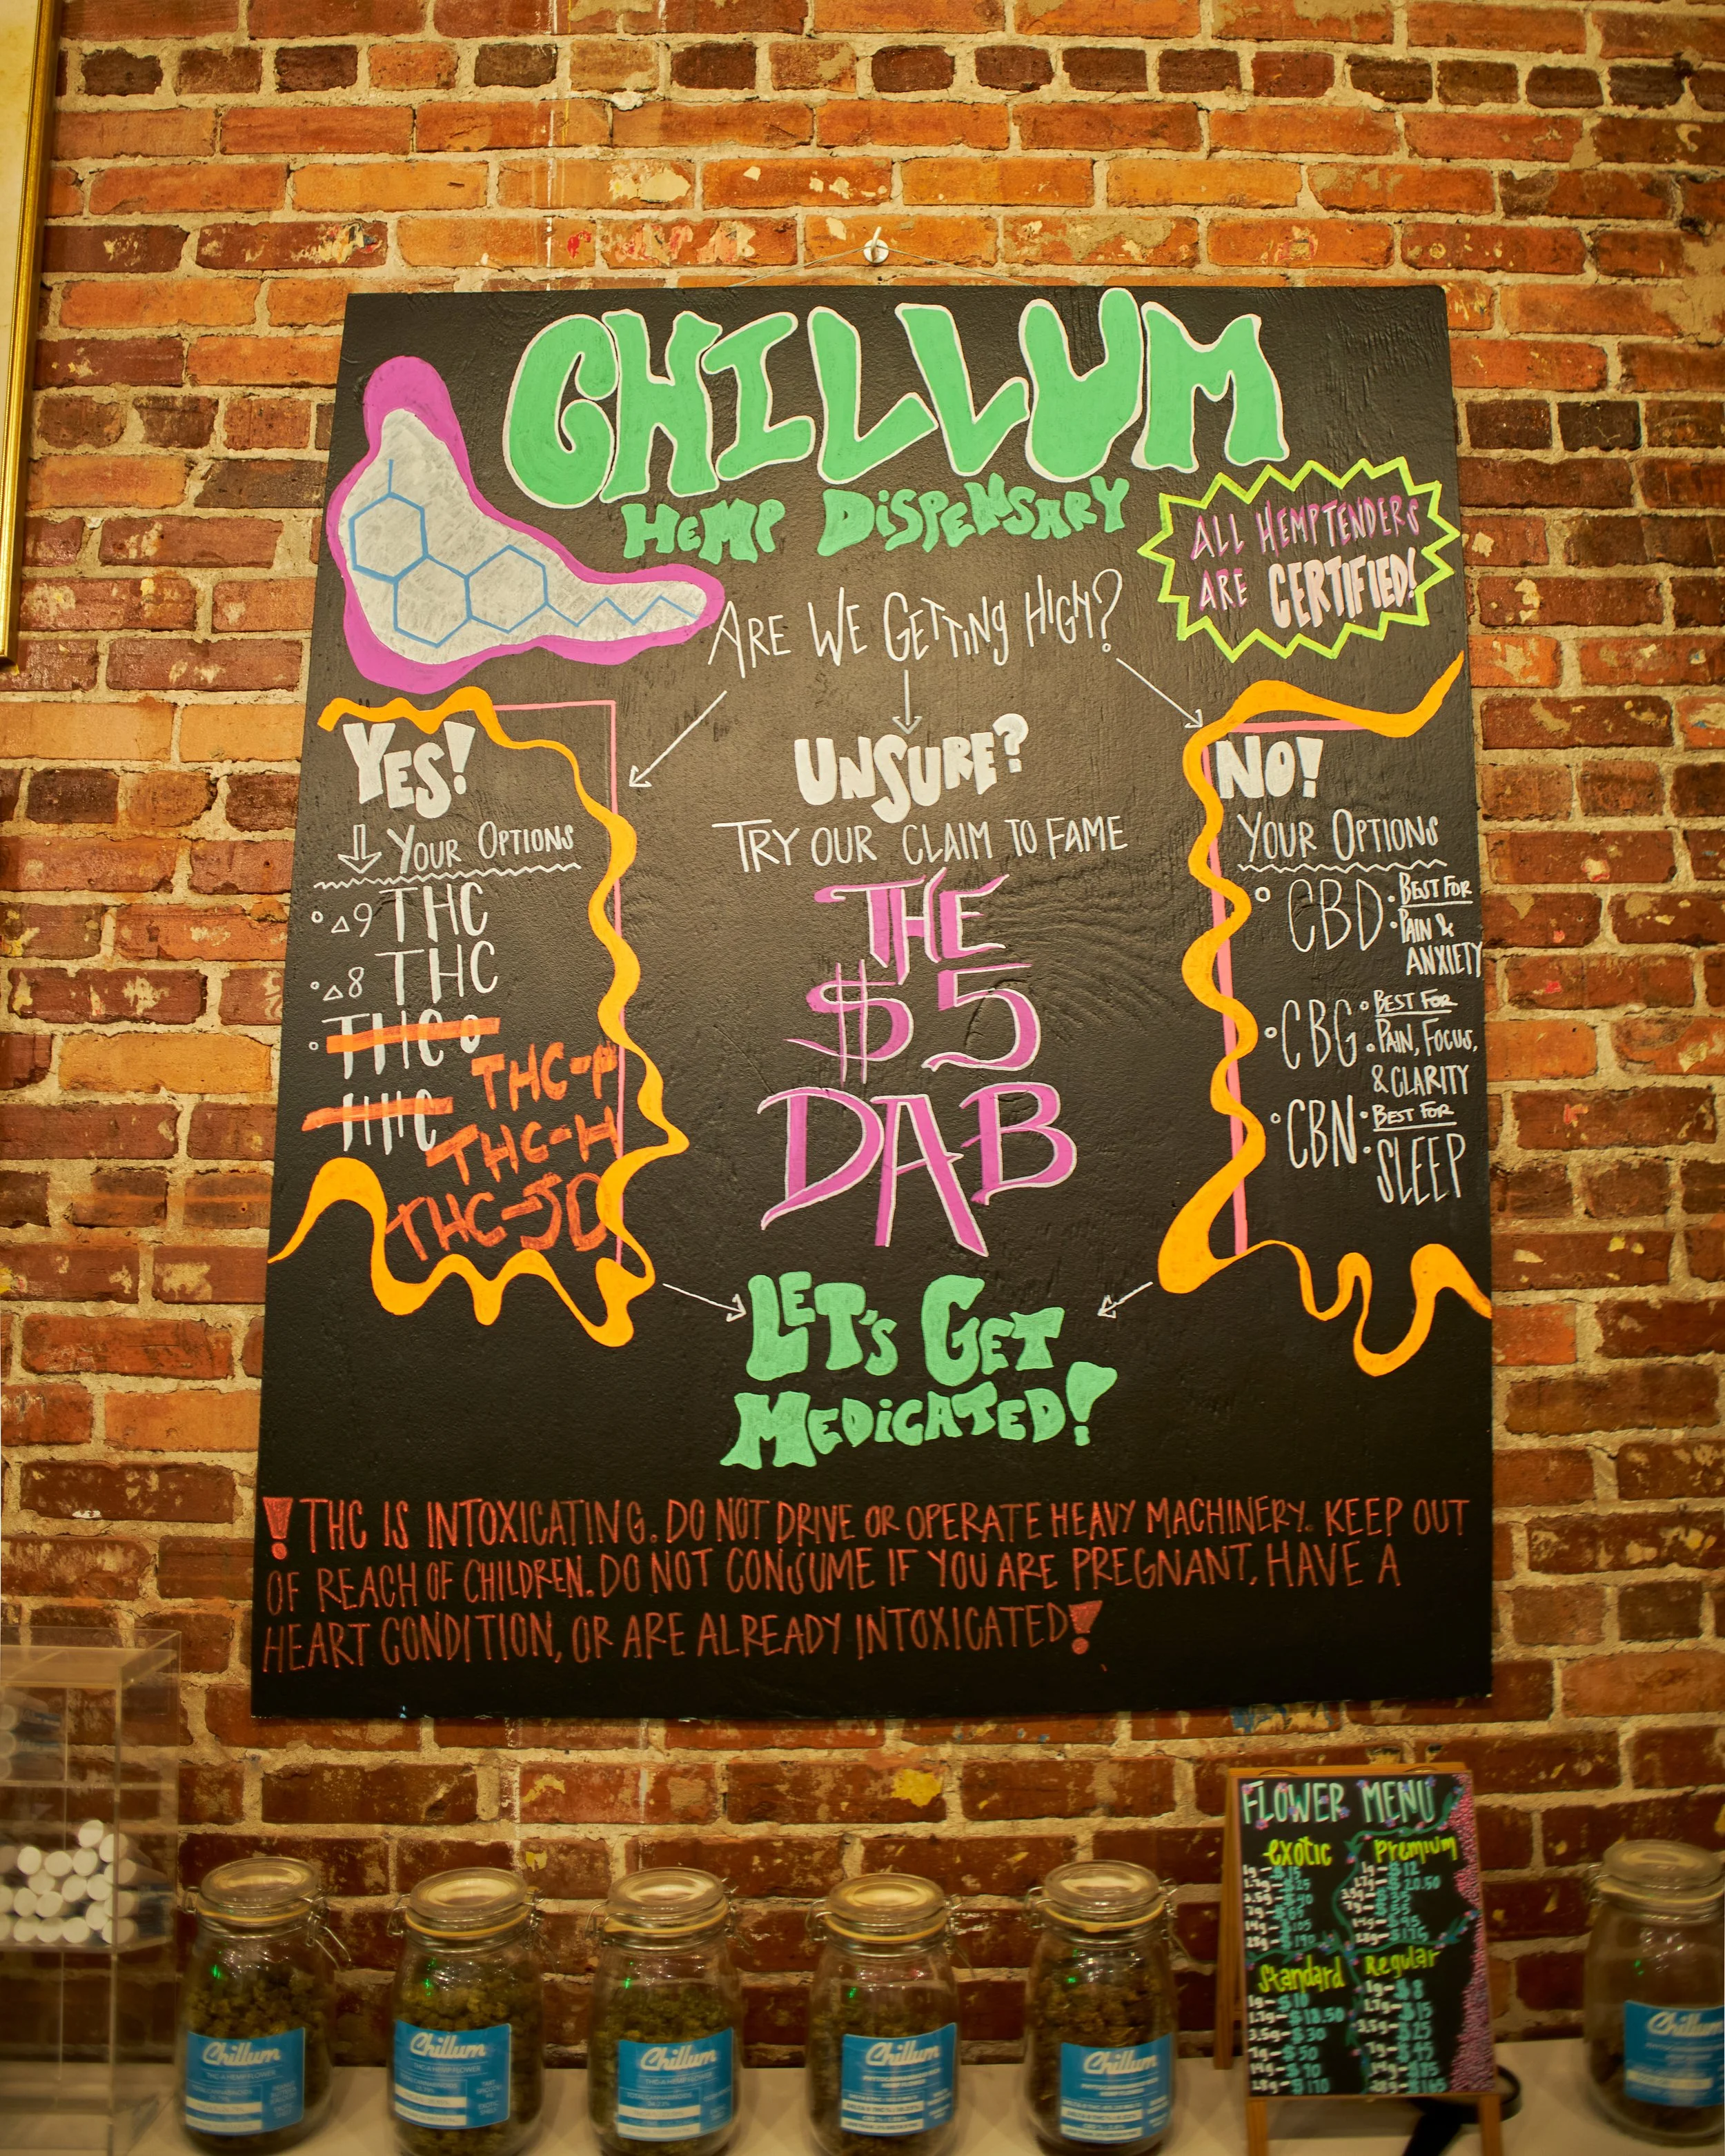 CHILLUM
HEMP DISPENSARY
ALL HEMPTENDERS
ARE CERTIFIED!
ARE WE GETTING HIGH?
YES!
YOUR OPTIONS
△9 THC
△8 THC
THC O
HHC
THC-P
THC-H
THC-JD
UNSURE?
TRY OUR CLAIM TO FAME
THE
$5
DAB
NO!
YOUR OPTIONS
CBD • BEST FOR
• PAIN &
ANXIETY
CBG • BEST FOR
• PAIN, FOCUS,
& CLARITY
CBN • BEST FOR
• SLEEP
LET'S GET
MEDICATED!
! THC IS INTOXICATING. DO NOT DRIVE OR OPERATE HEAVY MACHINERY. KEEP OUT
OF REACH OF CHILDREN. DO NOT CONSUME IF YOU ARE PREGNANT, HAVE A
HEART CONDITION, OR ARE ALREADY INTOXICATED!
FLOWER MENU
exotic
1g-$15
Premium
1g-$12
Standard
1g-$10
1.7g-$18.50
3.5g-$30
7g-$50
14g-$70
28g-$110
Regular
1g-$8
1.7g-$15
3.5g-$25
7g-$45
Chillum
Chillum
THC-A HEMP FLOWER
Chillum
THC-A HEMP FLOWER
Chillum
Chillum
Chillum